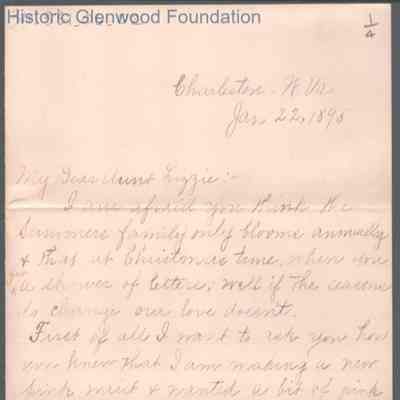 Historic Glenwood Foundation
1/4
Charleston - W. Va.
Jan 22, 1895
My Dear Aunt Lizzie:-
I am afraid you think the
Summers family only blooms annualy
& that at Christmas time, when you
a shower of letters; well if the seasons
do change our love doesnt.
First of all I want to ask you how
you knew that I am making a new
pink waist & wanted a bit of pink